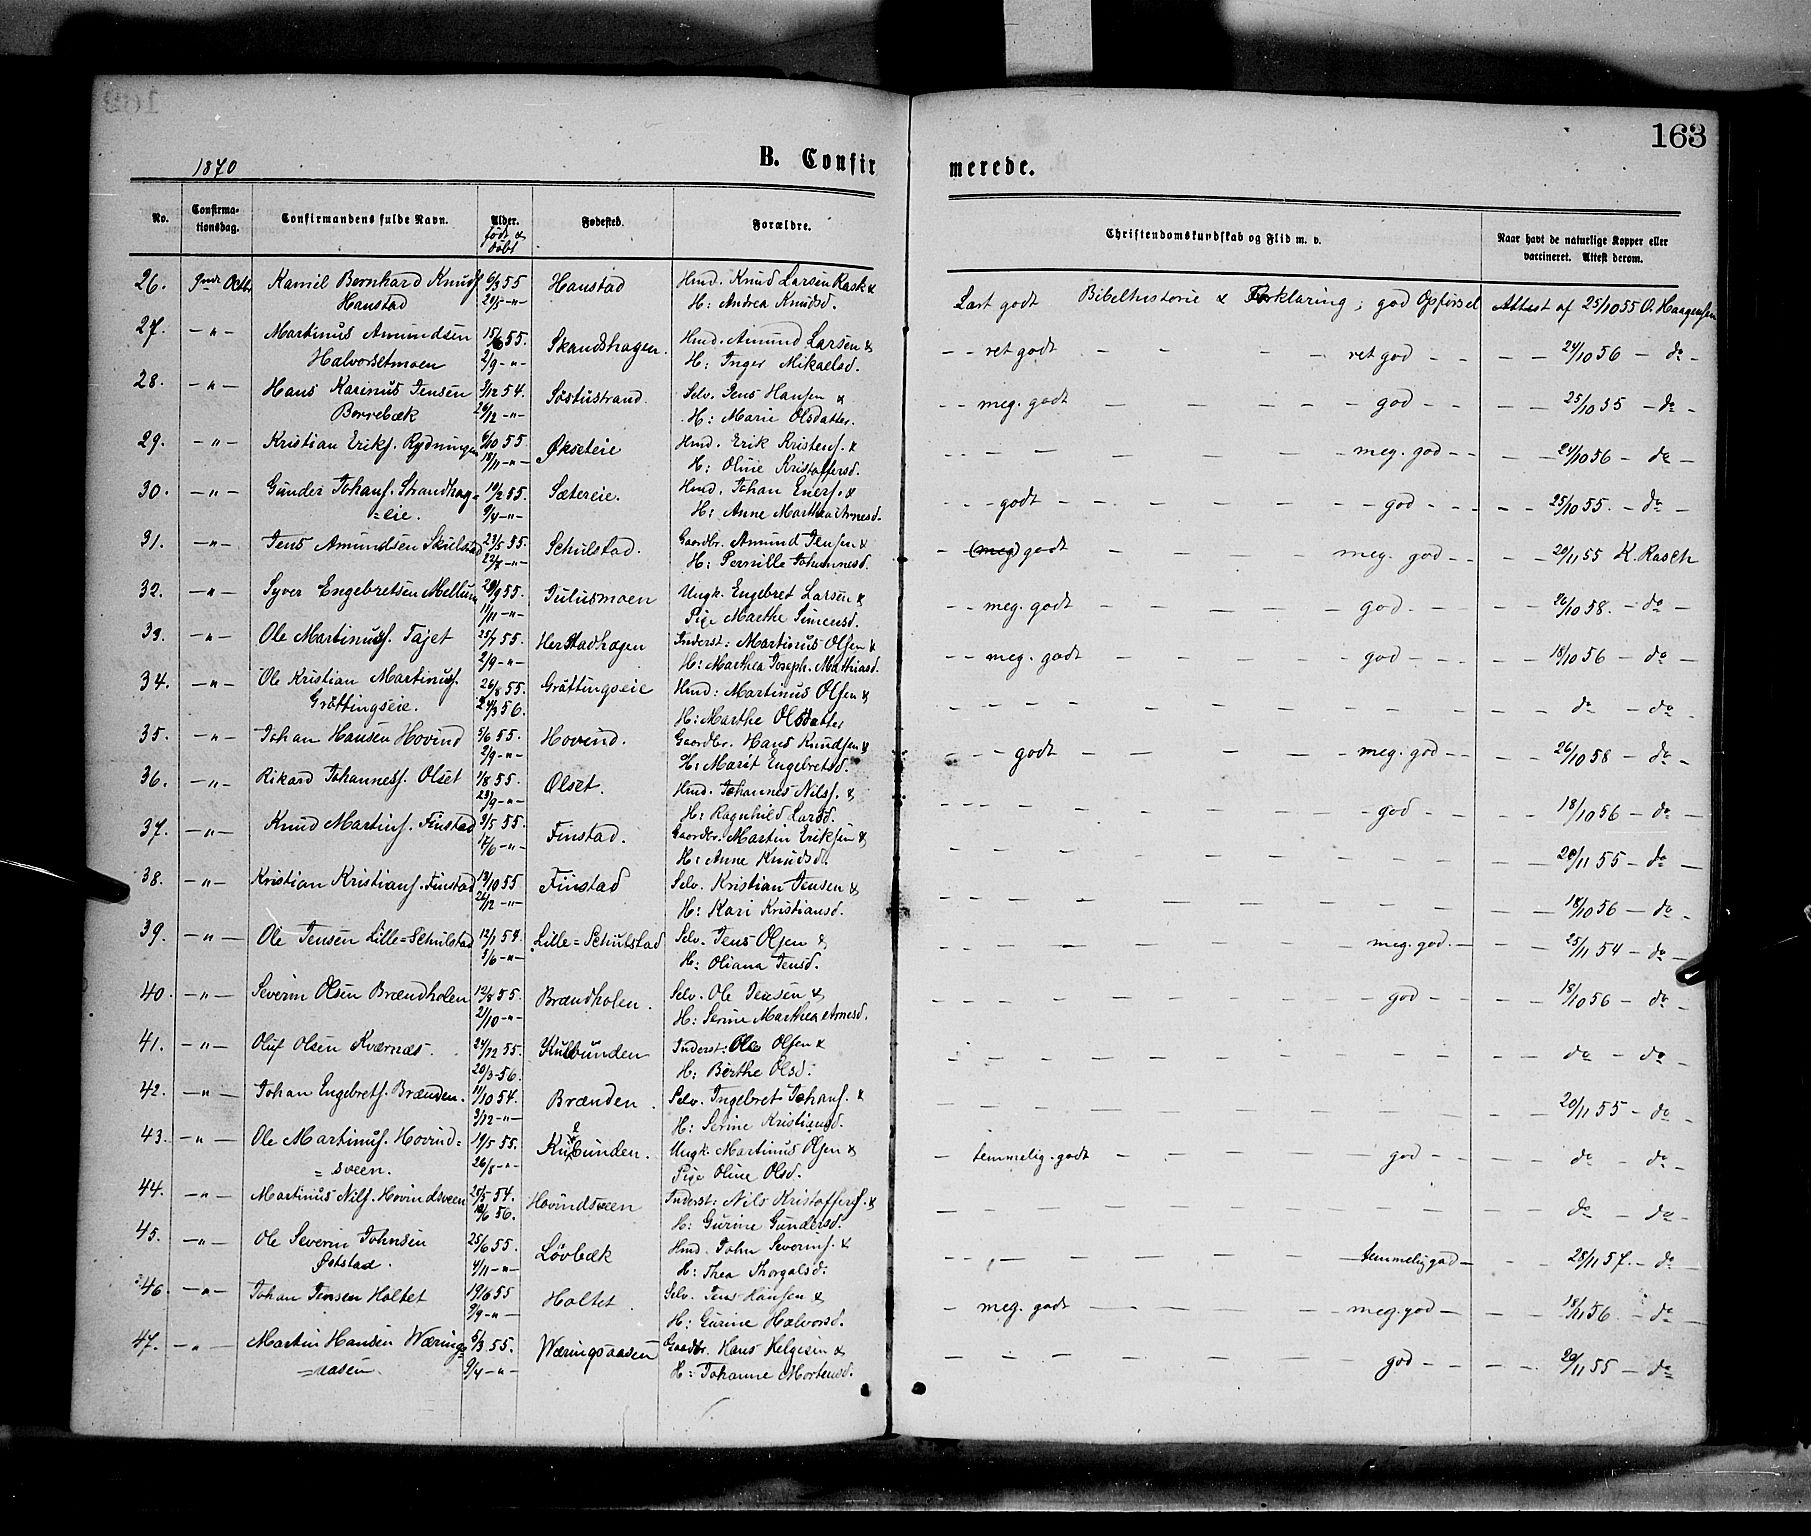 163
1870
B. Confirmerede.
No. Confirmationsdag. Confirmandens fulde Navn. Alder. født & døbt Fødested. Forældre. Christendomskundskab og Flid m. v. Naar havt de naturlige Kopper eller vaccineret. Attest derom.
26. Octbr Kamil Bernhard Knuds 6/3 55 Hanstad Hmd. Knud Larsen Rask & Læst godt Bibelhistorie & Forklaring; god Opførsel Attest af 25/10 55 O. Haagensen
Hanstad 29/5 -"- H: Andrea Knudsd.
27. -"- Martinus Amundsen 15/6 55. Skandshagen. Hmd. Amund Larsen & - - ret godt - - - - ret god - - - - 24/10 56 - do -
Halvorsetmoen 2/9 -"- H: Inger Mikaelsd.
28. -"- Hans Karinus Jensen 3/12 54. Søstustrand. Selv. Jens Hansen & - - meg. godt - - - - god - - - - 25/10 55 - do -
Borrebæk 26/12 -"- H: Marie Olsdatter.
29. -"- Kristian Eriks. Rydningen 6/10 55 Økseteie Hmd. Erik Kristens. & - - - - - - meg. god - - - - 24/10 56 - do -
18/11 -"- H: Oline Kristoffersd.
30. -"- Gunder Johans. Strandhag= 19/2 55. Sætereie. Hmd. Johan Eners. & - - godt - - - - god - - - - - 25/10 55. - do -
=eie. 9/4 -"- H: Anne Marthea Arnesd.
31. -"- Jens Amundsen Skulstad 23/5 55. Schulstad. Gaardbr. Amund Jensen & - (meg) godt - - - meg. god - - - - 20/11 55 K. Rasch
22/8 -"- H: Pernille Johannesd.
32. -"- Syver Engebretsen Mellum 20/9 55. Julusmoen Ungk. Engebret Larsen & - - meg. godt - - - god - - - - 26/10 58. - do -
11/11 -"- Pige Marthe Simensd.
33. -"- Ole Martinuss. Tajet 25/7 55. Herstadhagen Inderst: Martinus Olsen & - - meg. godt - - - god - - - - - 18/10 56 - do -
2/9 -"- H: Marthea Joseph. Mathiasd.
34. -"- Ole Kristian Martinuss. 26/8 55. Grøttingseie Hmd: Martinus Olsen & - - - - - - - - - do - do -
Grøttingseie. 24/3 56. H: Marthe Olsdatter
35. -"- Johan Hansen Hovind 3/6 55. Hovind. Gaardbr. Hans Knudsen & - - - godt - - - meg. god - - - - 26/10 58 - do -
2/9 -"- H: Marit Engebretsd.
36. -"- Rikard Johanness. Olset 1/8 55. Olset. Hmd. Johannes Nilss. & - - - - - - - god - - - - 18/10 56 - do -
23/9 -"- H: Ragnhild Larsd.
37. -"- Knud Martins. Finstad 3/5 55. Finstad. Gaardbr. Martin Eriksen & - - - - - - - - - 20/11 55 - do -
17/6 -"- H: Anne Knudsd.
38. -"- Kristian Kristians. Finstad 13/10 55 Finstad Selv. Kristian Jensen & - - - - - - - - - 18/10 56 - do -
26/12 -"- H: Kari Kristiansd.
39. -"- Ole Jensen Lille=Schulstad 12/1 54. Lille=Schulstad Selv. Jens Olsen & - - - - - - meg. god. - - - 25/11 54 - do -
5/6 -"- H: Oliana Jensd.
40. -"- Severin Olsen Brændholen 12/8 55. Brændholen. Selv. Ole Jensen & - - - - - - god - - - - 18/10 56 - do -
21/10 -"- H: Serine Marthea Arnesd.
41. -"- Oluf Olsen Kværnæs. 24/12 55. Kulbunden Inderst: Ole Olsen & - - - - - - - - - do - do -
20/3 -56. H: Berthe Olsd:
42. -"- Johan Engebrets. Brænden. 11/10 54. Brænden. Selv. Ingebret Johans. & - - - - - - - - - 20/11 55 - do -
3/12 -"- H: Serine Kristiansd.
43. -"- Ole Martinuss. Hovind= 19/5 55. Kulbunden. Ungk. Martinus Olsen & - temmelig. godt - - - - god - - - - do - do -
=sveen. 26/8 -"- Pige Oline Olsd.
44. -"- Martinus Nilss. Hovindsveen 28/5 54. Hovindsveen Inderst: Nils Kristoffers. & - - - - - - - - - do - do -
18/6 56. H: Gurine Gundersd.
45. -"- Ole Severin Johnsen 25/6 55. Løvbæk Hmd. John Severins. & - - - temmelig god - - - 28/11 57. - do -
Øststad. 4/11 -"- H: Thea Thorgalsd:
46. -"- Johan Jensen Holtet 19/6 55 Holtet. Selv. Jens Hansen & - meg. godt - - - - meg. god - - - 18/11 56. - do -
9/9 -"- H: Gurine Halvorsd.
47. -"- Martin Hansen Wærings= 5/3 55. Wæringsaasen Gaardbr. Hans Helgesen & - - - - - - god - - - - 20/11 55 - do -
=aasen. 9/4 -"- H: Johanne Mortensd.